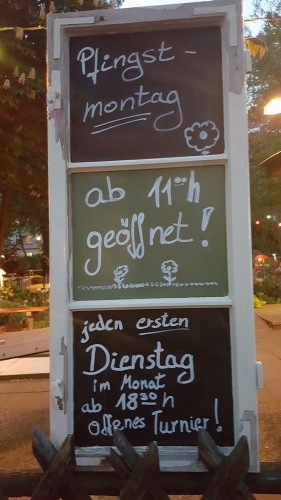 Pfingst-
montag
ab 11⁰⁰h
geöffnet!
jeden ersten
Dienstag
im Monat
ab 18³⁰ h
Offenes Turnier!